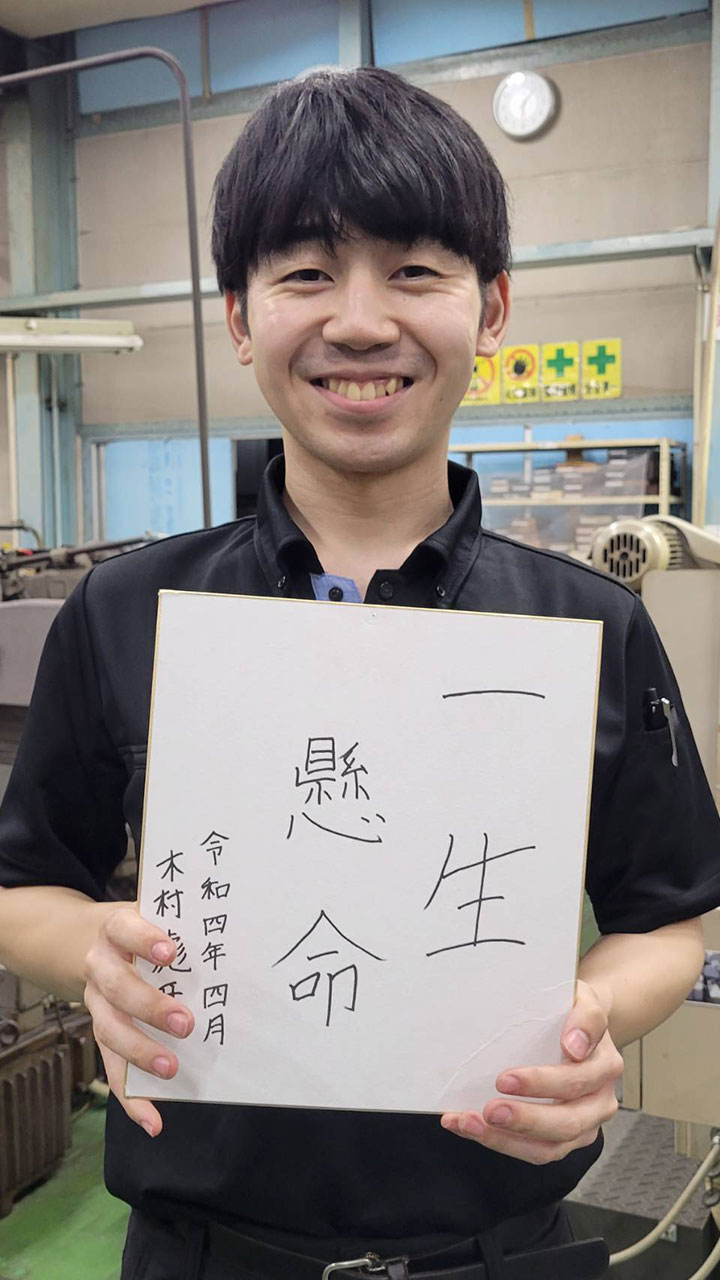 一生
懸命
令和四年四月
木村彪